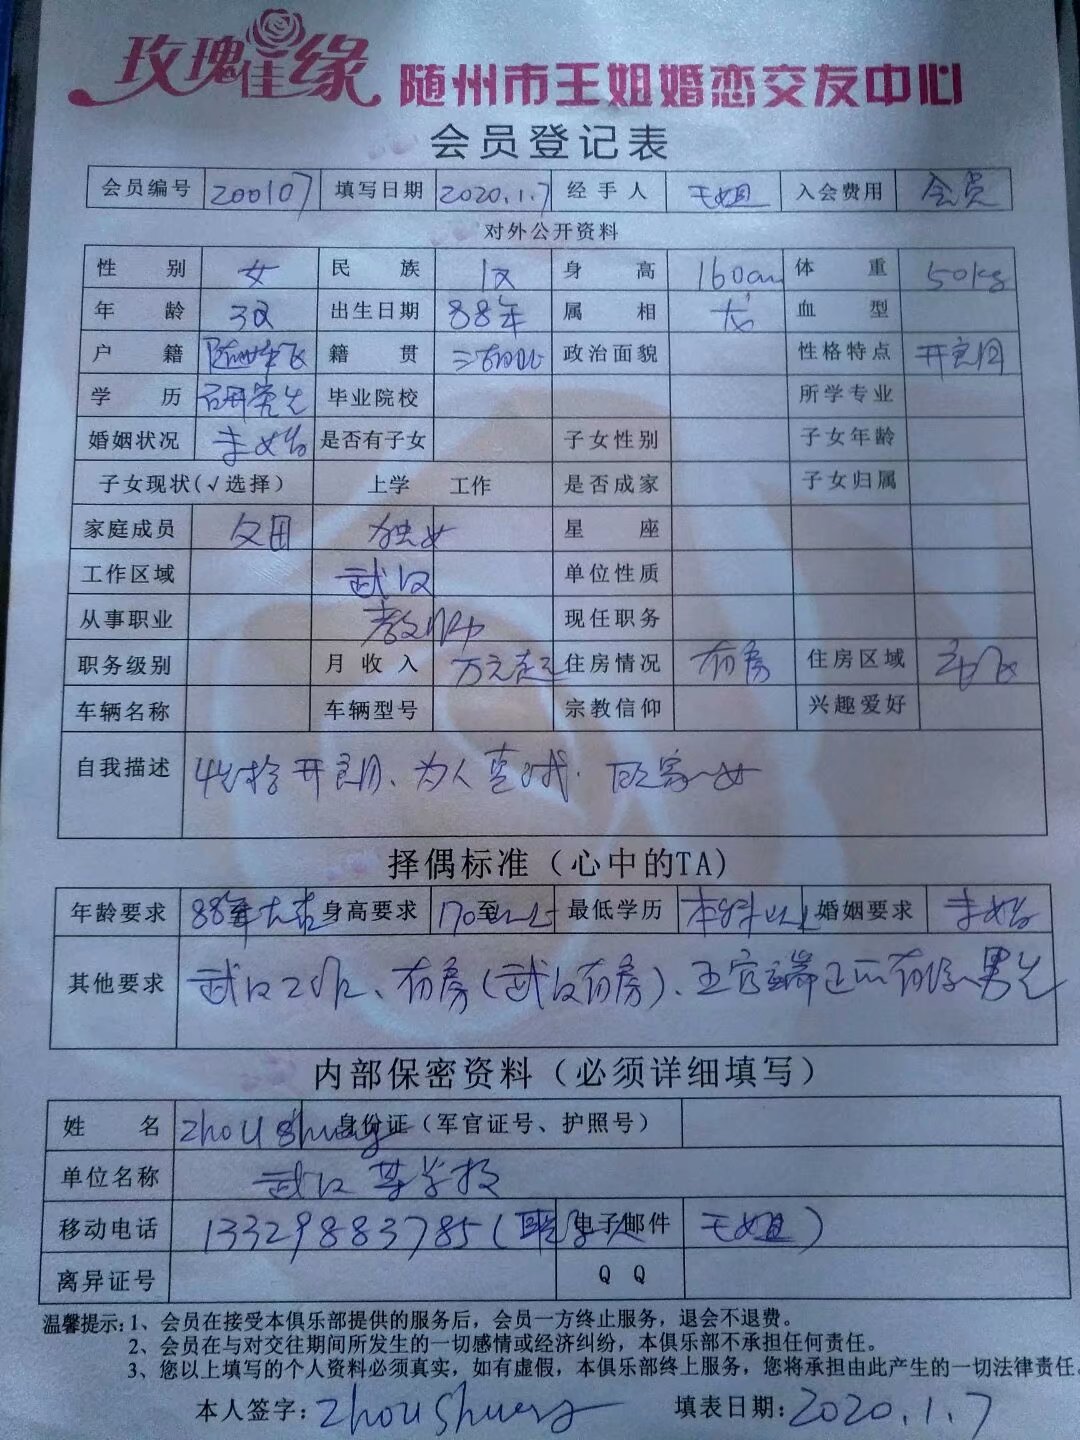 玫瑰佳缘 随州市王姐婚恋交友中心
会员登记表
会员编号 200107 填写日期 2020.1.7 经手人 王姐 入会费用 会员
对外公开资料
性别 女 民族 汉 身高 160cm 体重 50kg
年龄 32 出生日期 88年 属相 龙 血型
户籍 籍贯 政治面貌 性格特点 开朗
学历 研究生 毕业院校 所学专业
婚姻状况 未婚 是否有子女 子女性别 子女年龄
子女现状(√选择) 上学 工作 是否成家 子女归属
家庭成员 父母 独女 星座
工作区域 武汉 单位性质
从事职业 教师 现任职务
职务级别 月收入 万元左右 住房情况 有房 住房区域 武汉
车辆名称 车辆型号 宗教信仰 兴趣爱好
自我描述 性格开朗、为人真诚. 顾家一女
择偶标准（心中的TA)
年龄要求 88年左右 身高要求 170至以上 最低学历 本科以上 婚姻要求 未婚
其他要求 武汉工作、有房(武汉有房)、五官端正的有缘男士
内部保密资料（必须详细填写）
姓名 Zhou Shuang 身份证（军官证号、护照号）
单位名称 武汉某学校
移动电话 13329883785(联系人 电子邮件 王姐)
离异证号 QQ
温馨提示:1、会员在接受本俱乐部提供的服务后，会员一方终止服务，退会不退费。
2、会员在与对交往期间所发生的一切感情或经济纠纷，本俱乐部不承担任何责任。
3、您以上填写的个人资料必须真实，如有虚假，本俱乐部终上服务，您将承担由此产生的一切法律责任。
本人签字: Zhou Shuang 填表日期: 2020.1.7